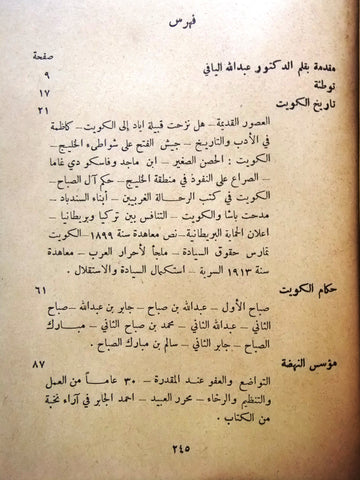 فهرس
صفحة
مقدمة بقلم الدكتور عبدالله اليافي ٩
توطئة ١٧
تاريخ الكويت ٢١
العصور القديمة – هل نزحت قبيلة اياد إلى الكويت – كاظمة
في الأدب والتاريخ – جيش الفتح على شواطىء الخليج –
الكويت : الحصن الصغير – ابن ماجد وفاسكو دي غاما
– الصراع على النفوذ في منطقة الخليج – حكم آل الصباح
الكويت في كتب الرحالة الغربيين – أبناء السندباد –
مدحت باشا والكويت – التنافس بين تركيا وبريطانيا –
اعلان الحماية البريطانية – نص معاهدة سنة ١٨٩٩ – الكويت
تمارس حقوق السيادة – ملجأ لأحرار العرب – معاهدة
سنة ١٩١٣ السرية – استكمال السيادة والاستقلال .
حكام الكويت ٦١
صباح الأول – عبدالله بن صباح – جابر بن عبدالله – صباح
الثاني – عبدالله الثاني – محمد بن صباح الثاني – مبارك
الصباح – جابر الثاني – سالم بن مبارك الصباح .
مؤسس النهضة ٨٧
التواضع والعفو عند المقدرة – ٣٠ عاماً من العمل
والتنظيم والرخاء – محرر العبيد – احمد الجابر في آراء نخبة
من الكتاب .
٢٤٥